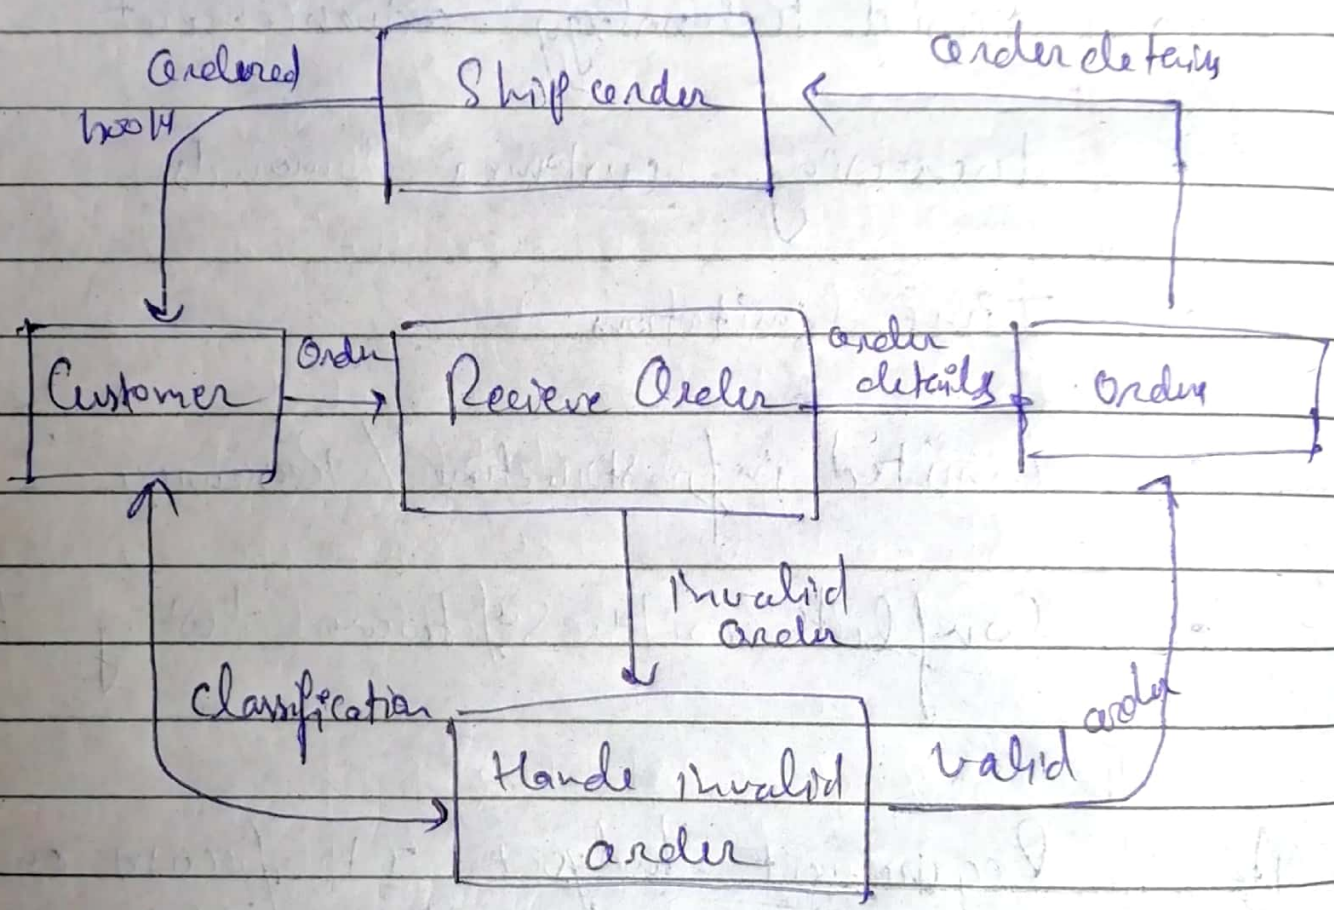 Ordered
book
Ship order
Order details
Customer
Order
Recieve Order
order
details
Order
Invalid
order
Classification
Hande invalid
order
Valid order